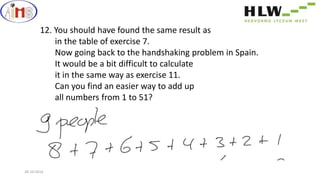 HLW
HERVORMD LYCEUM WEST
12. You should have found the same result as
in the table of exercise 7.
Now going back to the handshaking problem in Spain.
It would be a bit difficult to calculate
it in the same way as exercise 11.
Can you find an easier way to add up
all numbers from 1 to 51?
9 people
8+7+6+5+4+3+2+1